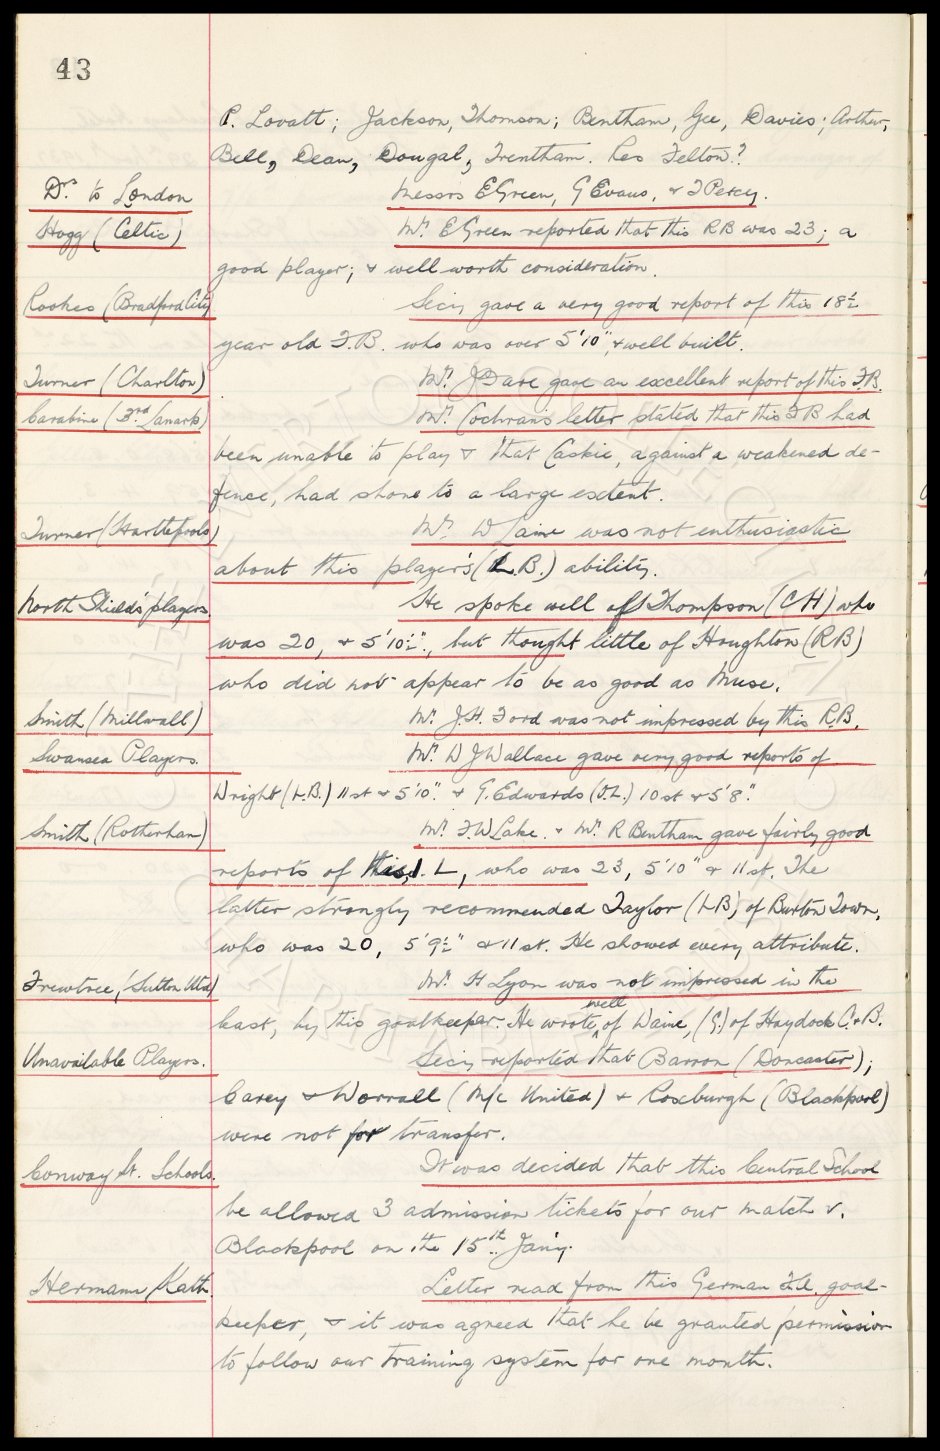 43
P. Lovatt; Jackson, Thomson; Bentham, Gee, Davies; Arthur,
Bell, Dean, Dougal, Trentham. Res Felton?
Drs to London Messrs E Green, G Evans, & F Percy.
Hogg (Celtic) Mr. E Green reported that this RB was 23; a
good player; & well worth consideration.
Rookes (Bradford City) Secy gave a very good report of this 18½
year old F.B. who was over 5'10", & well built.
Turner (Charlton) Mr. J Dare gave an excellent report of this FB.
Carabine (3rd Lanark) Mr. Cochrans letter stated that this FB had
been unable to play & that Caskie, against a weakened de-
fence, had shone to a large extent.
Turner (Hartlepools) Mr. W Laine was not enthusiastic
about this player's (L.B.) ability.
North Shields' players. He spoke well of Thompson (CH) who
was 20, & 5'10½"., but thought little of Houghton (RB)
who did not appear to be as good as Muse.
Smith (Millwall) Mr. J.H. Ford was not impressed by this R.B.
Swansea Players. Mr. W J Wallace gave very good reports of
Wright (L.B.) 11 st & 5'10". & G. Edwards (I.L.) 10 st & 5'8".
Smith (Rotherham) Mr. F.W Lake. & Mr. R Bentham gave fairly good
reports of this I. L, who was 23, 5'10" & 11 st. The
latter strongly recommended Taylor (LB) of Burton Town,
who was 20, 5'9½" & 11 st. He showed every attribute.
Frewtree, (Sutton Utd) Mr. H Lyon was not impressed in the
least, by this goalkeeper. He wrote well of Waine, (G.) of Haydock C. & B.
Unavailable Players. Secy reported that Barron (Doncaster);
Carey & Worrall (M/c United) & Roxburgh (Blackpool)
were not for transfer.
Conway St. Schools. It was decided that this Central School
be allowed 3 admission tickets for our match v.
Blackpool on the 15th Jany.
Hermann Kath. Letter read from this German goal-
keeper, & it was agreed that he be granted permission
to follow our training system for one month.